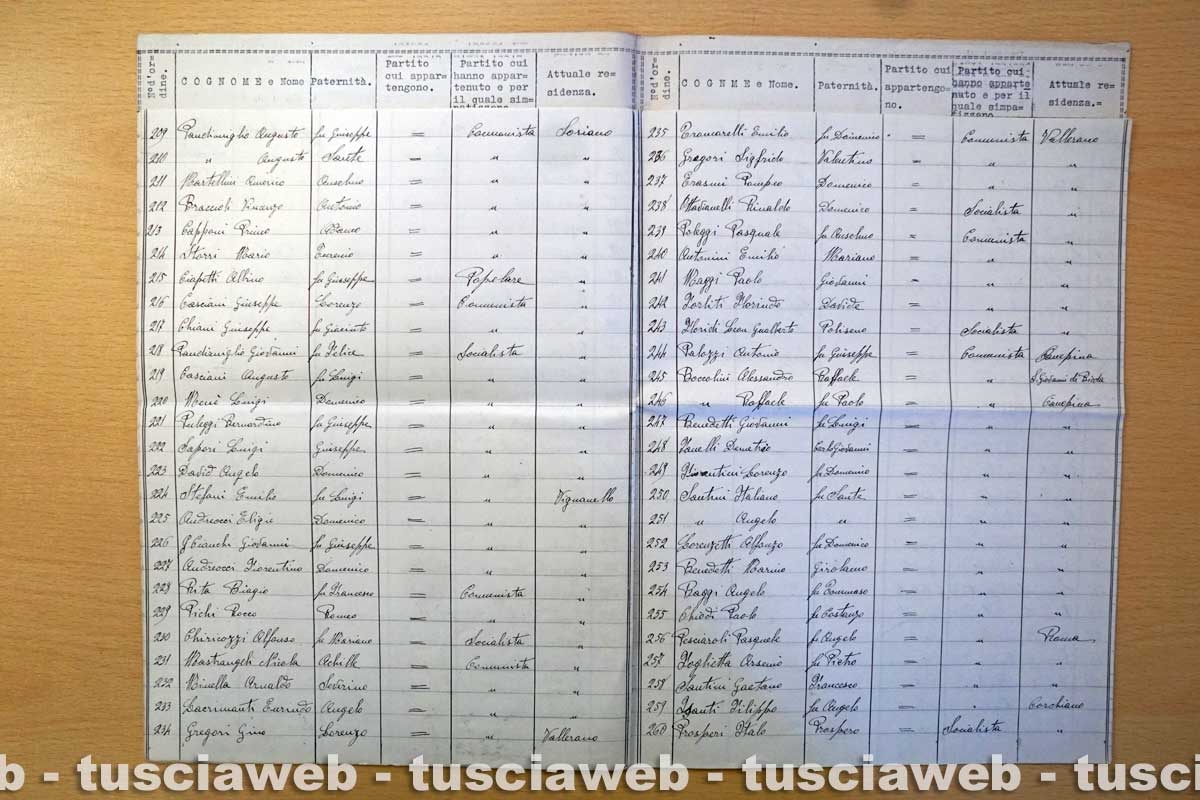 N° d'or= dine. COGNOME e Nome Paternità. Partito cui appar= tengono. Partito cui hanno appar= tenuto e per il quale sim= patizzano Attuale re= sidenza.
209 Pandimiglio Augusto fu Giuseppe = Comunista Soriano
210 " Augusto Sante = " "
211 Martellini Americo Anselmo = " "
212 Braccioli Vincenzo Antonio = " "
213 Capponi Primo = " "
214 Storri Mario = " "
215 Ciapetti Albino fu Giuseppe = Popolare "
216 Casciani Giuseppe Lorenzo = Comunista "
217 Chiani Giuseppe fu Giacinto = " "
218 Pandimiglio Giovanni fu Felice = Socialista "
219 Casciani Augusto fu Luigi = " "
220 Menè Luigi Domenico = " "
221 Puleggi Bernardino fu Giuseppe = " "
222 Sapori Luigi Giuseppe = " "
223 David Angelo Domenico = " "
224 Stefani Emilio fu Luigi = " Vignanello
225 Andreocci Eligio Domenico = " "
226 Giovanni fu Giuseppe = " "
227 Andreocci Fiorentino Domenico = " "
228 Pita Biagio fu Francesco = Comunista "
229 Pichi Rocco Romeo = " "
230 Chiricozzi Alfonso fu Mariano = Socialista "
231 Mastrangeli Nicola Achille = Comunista "
232 Minella Arnaldo Severino = " "
233 Lacrimanti Angelo = " "
234 Gregori Gino Lorenzo = " Vallerano
N° d'or= dine. COGNME e Nome. Paternità. Partito cui appartengo= no. Partito cui hanno apparte nuto e per il quale simpa= tizzano Attuale re= sidenza.
235 Emilio fu Domenico = Comunista Vallerano
236 Gregori Sigfrido Valentino = " "
237 Erasmi Pompeo Domenico = " "
238 Ottavianelli Rinaldo Domenico = Socialista "
239 Poleggi Pasquale fu Anselmo = Comunista "
240 Antonini Emilio Mariano = " "
241 Maggi Paolo Giovanni = " "
242 Forliti Florindo Davide = " "
243 Floridi Leon Gualberto Poliseno = Socialista "
244 Palozzi Antonio fu Giuseppe = Comunista Canepina
245 Boccolini Alessandro Raffaele = " S. Giovanni di Bieda
246 " Raffaele fu Paolo = " Canepina
247 Benedetti Giovanni fu Luigi = " "
248 Zanelli Demetrio Carlo Giovanni = " "
249 Fiorentini Lorenzo fu Domenico = " "
250 Santini Italiano fu Sante = " "
251 " Angelo " = " "
252 Lorenzetti Alfonzo fu Domenico = " "
253 Benedetti Marino Girolamo = " "
254 Baggi Angelo fu Tommaso = " "
255 Chiodi Paolo fu Costanzo = " "
256 Pesciaroli Pasquale fu Angelo = " Roma
257 Foglietta Arsenio fu Pietro = " "
258 Santini Gaetano Francesco = " "
259 Filippo fu Angelo = " Corchiano
260 Prosperi Italo Prospero = Socialista "
b - tusciaweb - tusciaweb - tusciaweb - tusc